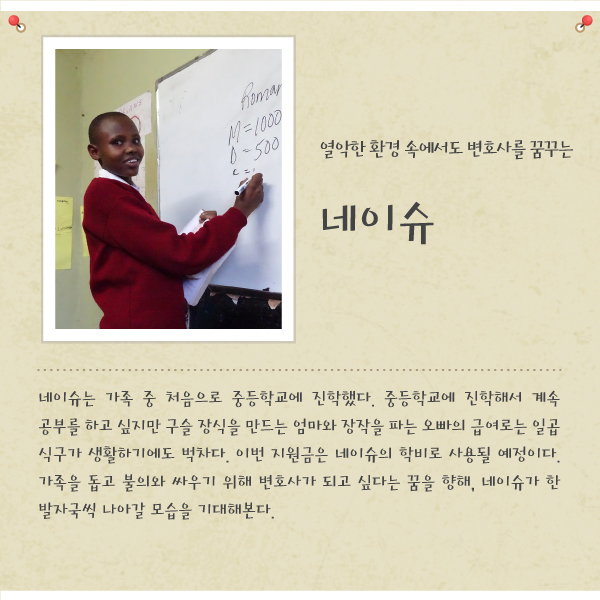 Roman
M=1000
D=500
열악한 환경 속에서도 변호사를 꿈꾸는
네이슈
네이슈는 가족 중 처음으로 중등학교에 진학했다. 중등학교에 진학해서 계속
공부를 하고 싶지만 구슬 장식을 만드는 엄마와 장작을 파는 오빠의 급여로는 일곱
식구가 생활하기에도 벅차다. 이번 지원금은 네이슈의 학비로 사용될 예정이다.
가족을 돕고 불의와 싸우기 위해 변호사가 되고 싶다는 꿈을 향해, 네이슈가 한
발자국씩 나아갈 모습을 기대해본다.